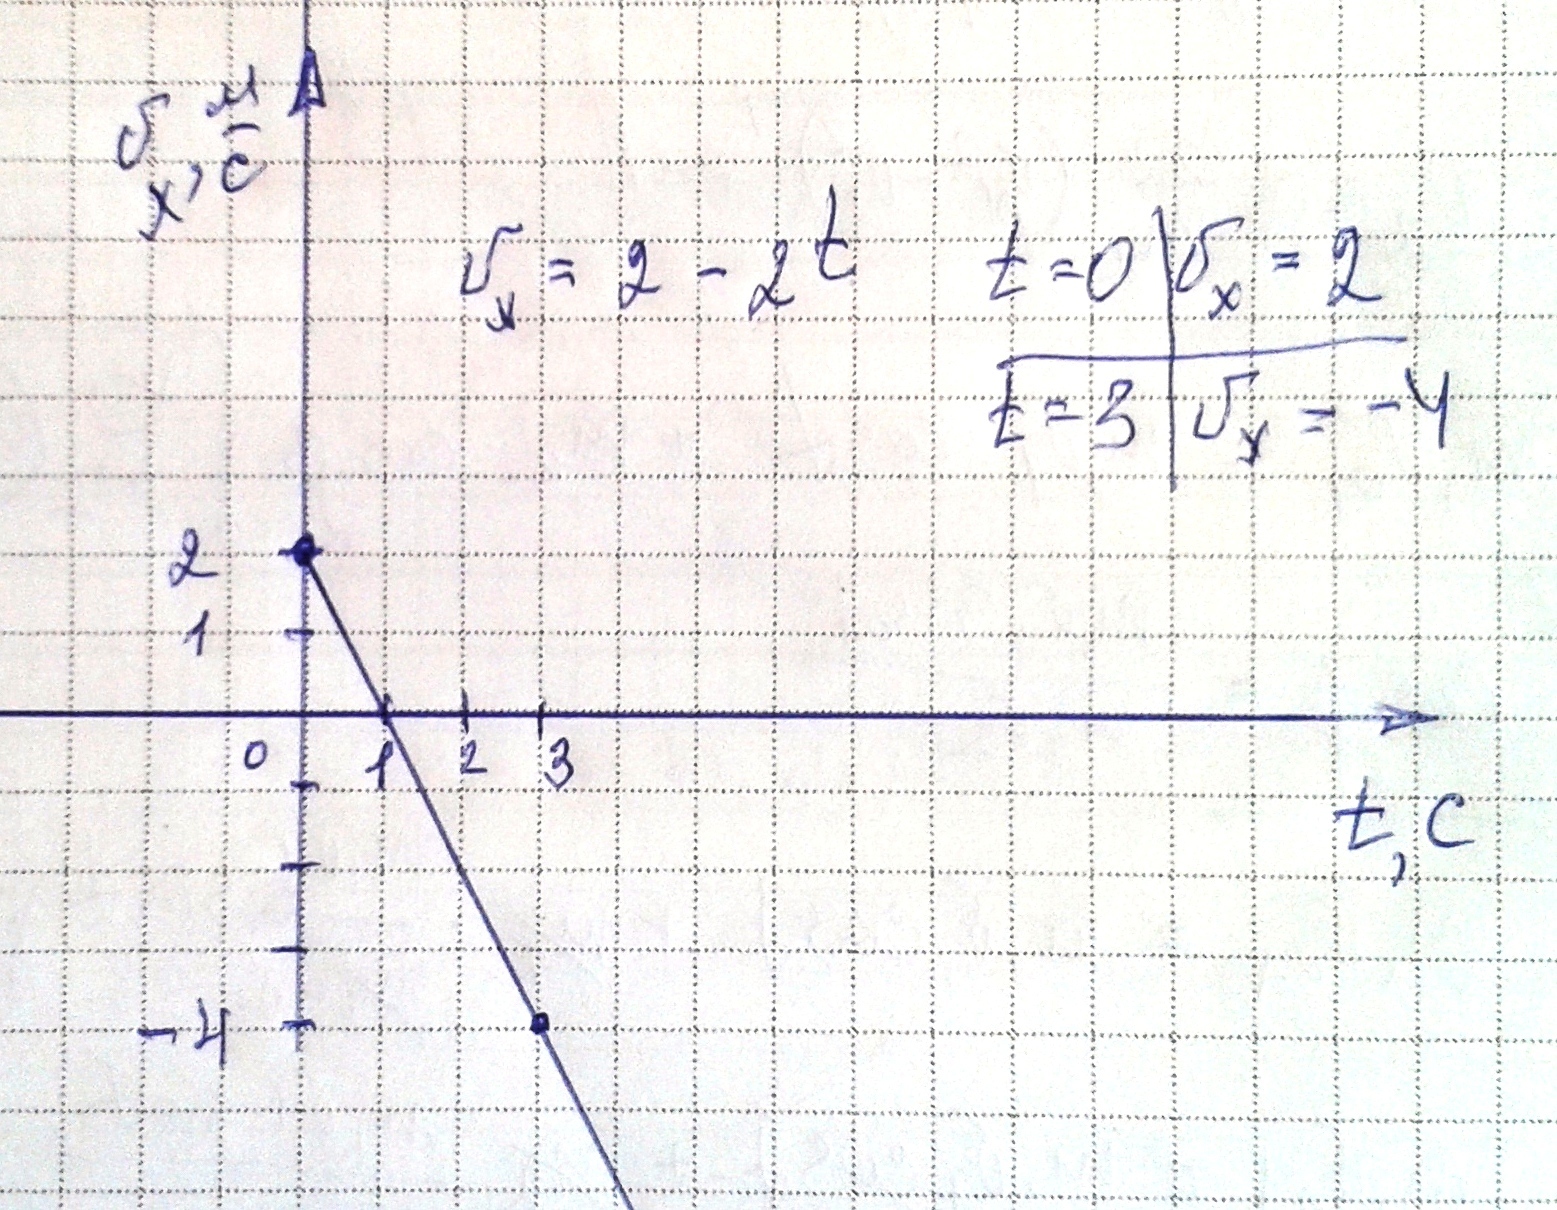 υₓ, м/с
υₓ = 2 - 2t
t = 0 | υₓ = 2
t = 3 | υₓ = -4
2
1
0 1 2 3
t, с
-4